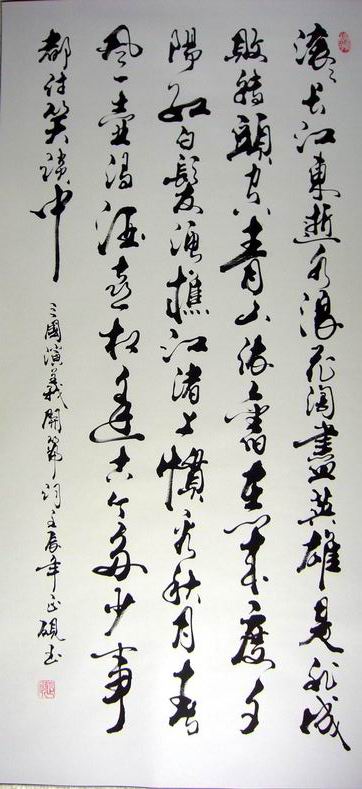 滚滚长江東逝水浪花淘盡英雄是非成
敗轉頭空青山依舊在幾度夕
陽红白髮漁樵江渚上慣看秋月春
風一壶濁酒喜相逢古今多少事
都付笑談中
三國演義開篇词壬辰年正硯书